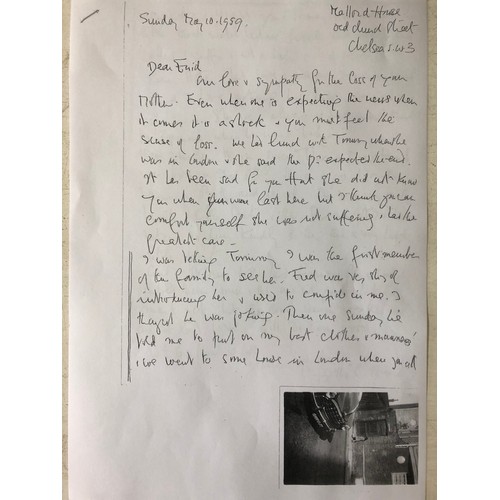 Mallord House
Sunday May 10. 1959.
Old Church Street
Chelsea S.W3
Dear Enid
Our love & sympathy for the loss of your
Mother. Even when one is expecting the news when
it comes it is a shock & you must feel the
sense of loss. We had lunch with Tommy when she
was in London & she said the Dr expected the end.
It has been sad for you that she did not know
you when you were last here but I think you can
comfort yourself she was not suffering & had the
greatest care -
I was telling Tommy I was the first member
of the family to see her. Fred was very shy of
introducing her & used to confide in me. I
thought he was joking. Then one Sunday he
told me to put on my best clothes & manners
& we went to some house in London where you all